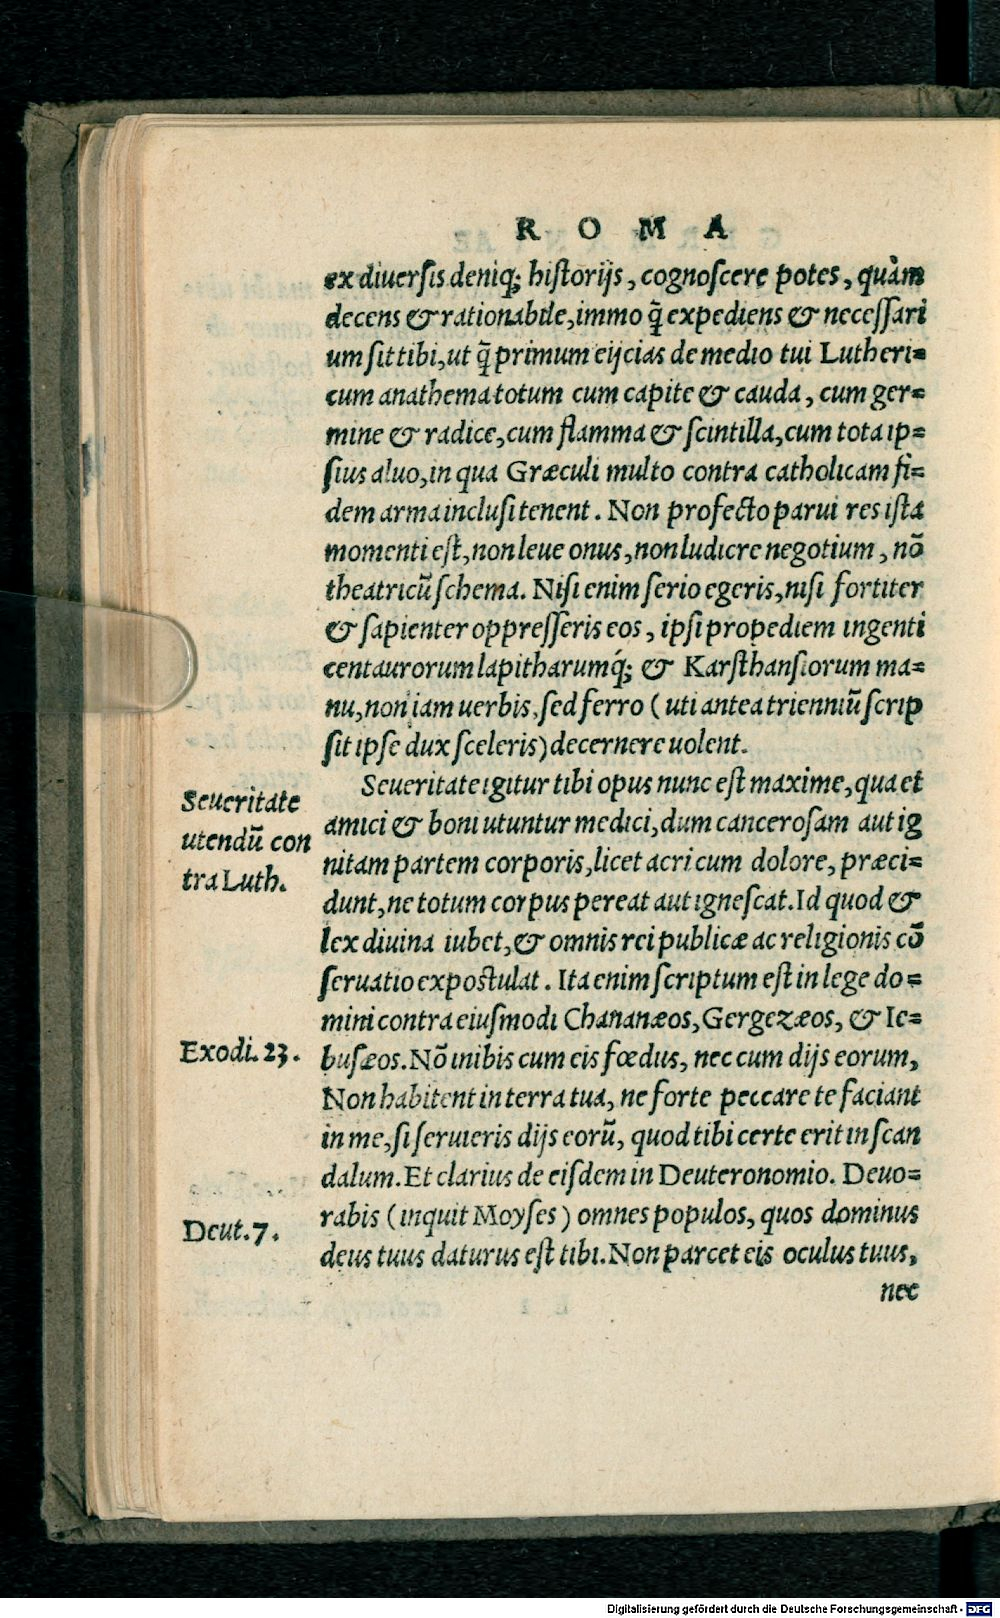 ROMA
ex diuersis deniq; historijs, cognoscere potes, quàm
decens & rationabile, immo q̃ expediens & necessari
um sit tibi, ut q̃ primum eijcias de medio tui Lutheri=
cum anathema totum cum capite & cauda, cum ger=
mine & radice, cum flamma & scintilla, cum tota ip=
sius aluo, in qua Græculi multo contra catholicam fi=
dem arma inclusi tenent. Non profecto parui res ista
momenti est, non leue onus, non ludicre negotium, nõ
theatricũ schema. Nisi enim serio egeris, nisi fortiter
& sapienter oppresseris eos, ipsi propediem ingenti
centaurorum lapitharumq́; & Karsthansiorum ma=
nu, non iam uerbis, sed ferro (uti antea trienniũ scrip
sit ipse dux sceleris) decernere uolent.
Seueritate igitur tibi opus nunc est maxime, qua et
amici & boni utuntur medici, dum cancerosam aut ig
nitam partem corporis, licet acri cum dolore, præci=
dunt, ne totum corpus pereat aut ignescat. Id quod &
lex diuina iubet, & omnis rei publicæ ac religionis cõ
seruatio expostulat. Ita enim scriptum est in lege do=
mini contra eiusmodi Chananæos, Gergezæos, & Ie=
busæos. Nõ inibis cum eis fœdus, nec cum dijs eorum,
Non habitent in terra tua, ne forte peccare te faciant
in me, si seruieris dijs eorũ, quod tibi certe erit in scan
dalum. Et clarius de eisdem in Deuteronomio. Deuo=
rabis (inquit Moyses) omnes populos, quos dominus
deus tuus daturus est tibi. Non parcet eis oculus tuus,
nec
Seueritate
utendũ con
tra Luth.
Exodi. 23.
Deut. 7.
Digitalisierung gefördert durch die Deutsche Forschungsgemeinschaft - DFG